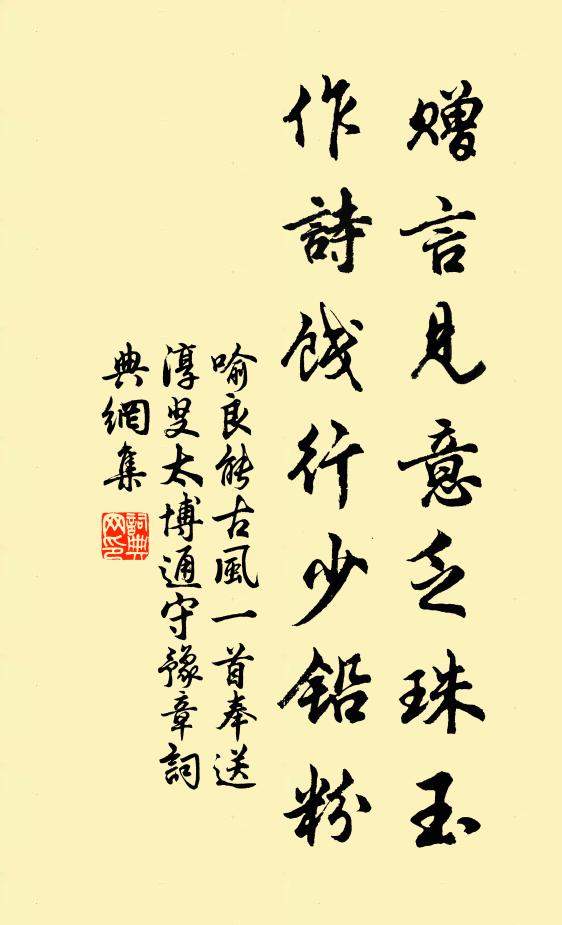 贈言見意乏珠玉
作詩餞行少鉛粉
喻良能古風一首奉送
淳叟太博通守豫章詞
典網集
詞典網印